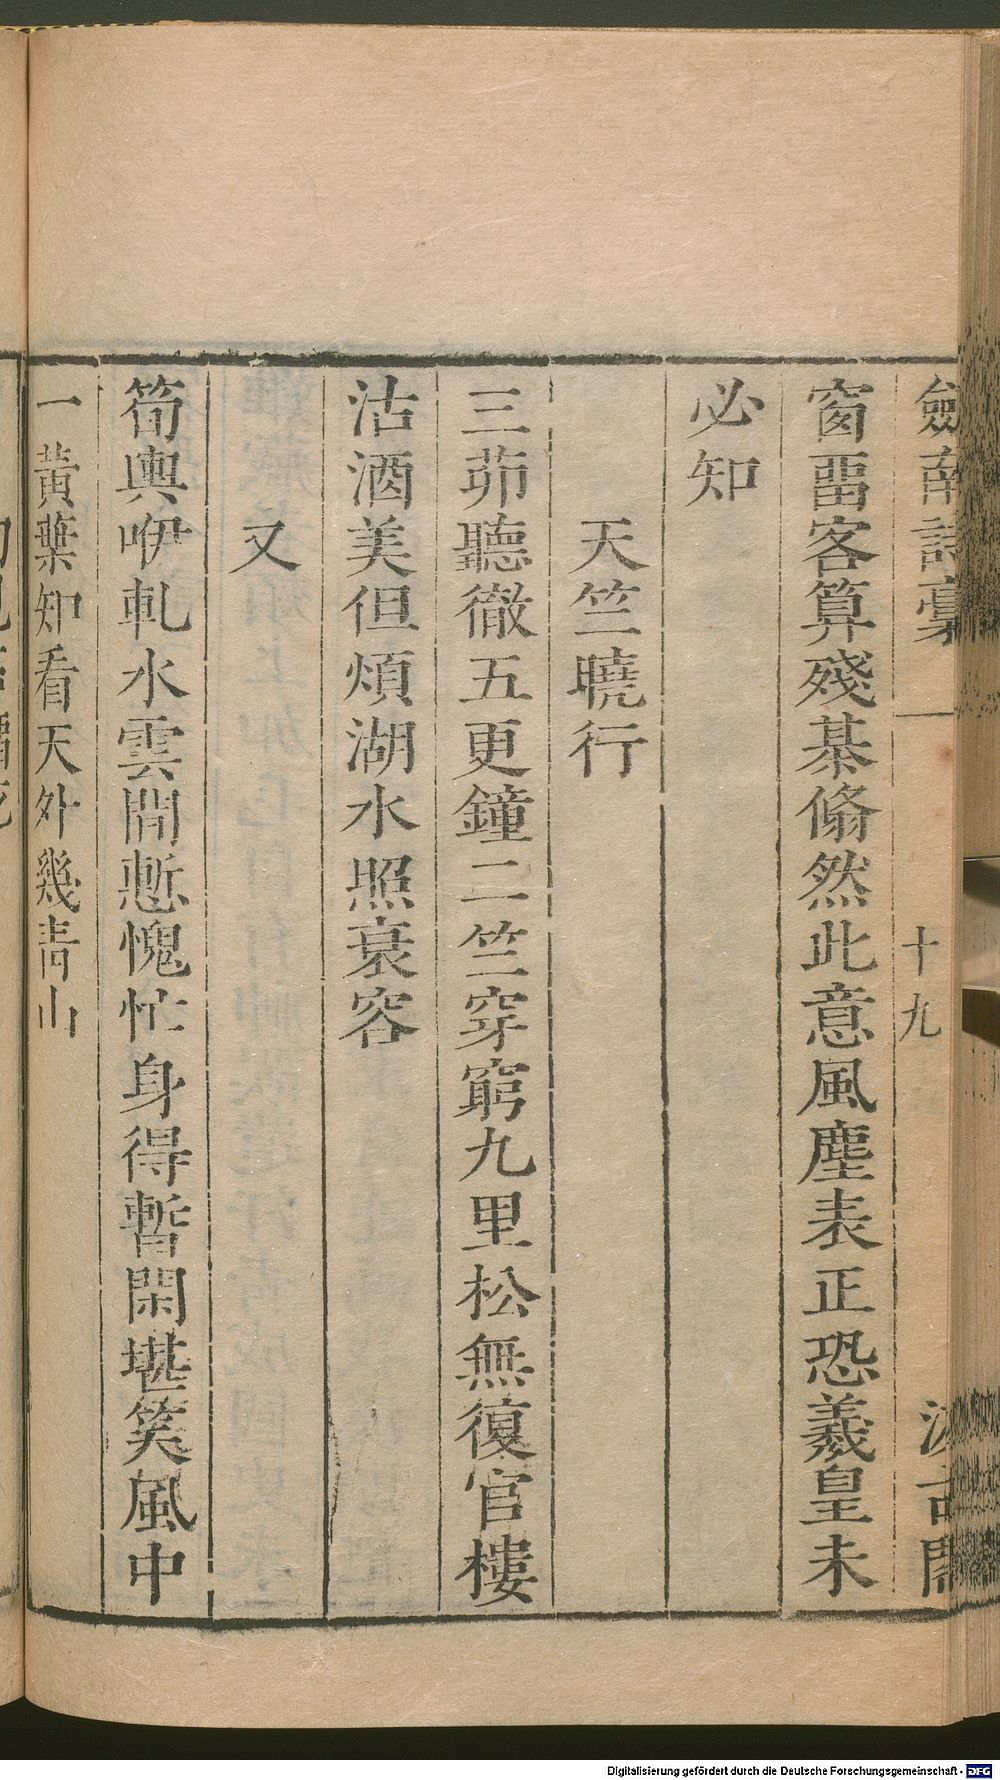 劍南詩稾
十九
汲古閣
窗畱客算殘棊翛然此意風塵表正恐羲皇未
必知
天竺曉行
三茆聽徹五更鐘二竺穿窮九里松無復官樓
沽酒美但煩湖水照衰容
又
筍輿咿軋水雲間慙愧忙身得暫閑堪笑風中
一黃葉知看天外幾青山
Digitalisierung gefördert durch die Deutsche Forschungsgemeinschaft - DFG